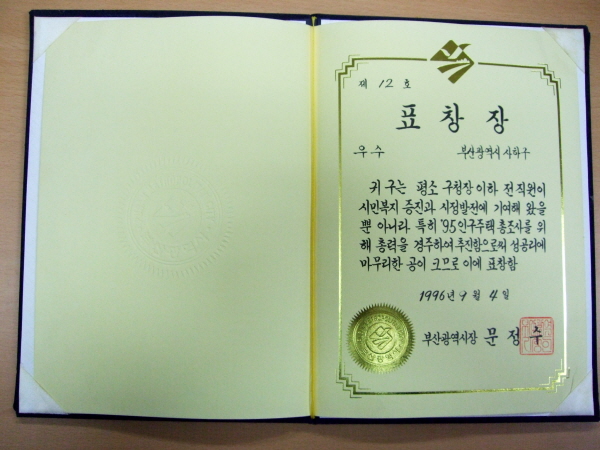 제 12 호
표 창 장
우 수 부산광역시 사하구
귀 구는 평소 구청장 이하 전 직원이
시민복지 증진과 시정발전에 기여해 왔을
뿐 아니라 특히 '95인구주택 총조사를 위
해 총력을 경주하여 추진함으로써 성공리에
마무리한 공이 크므로 이에 표창함
1996년 9 월 4 일
부산광역시장 문 정 수